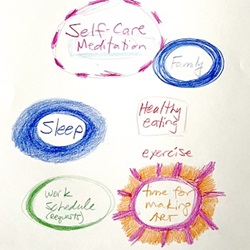 Self-Care
Meditation
Family
Sleep
Healthy
eating
exercise
work
schedule
(requests)
time for
making
ART